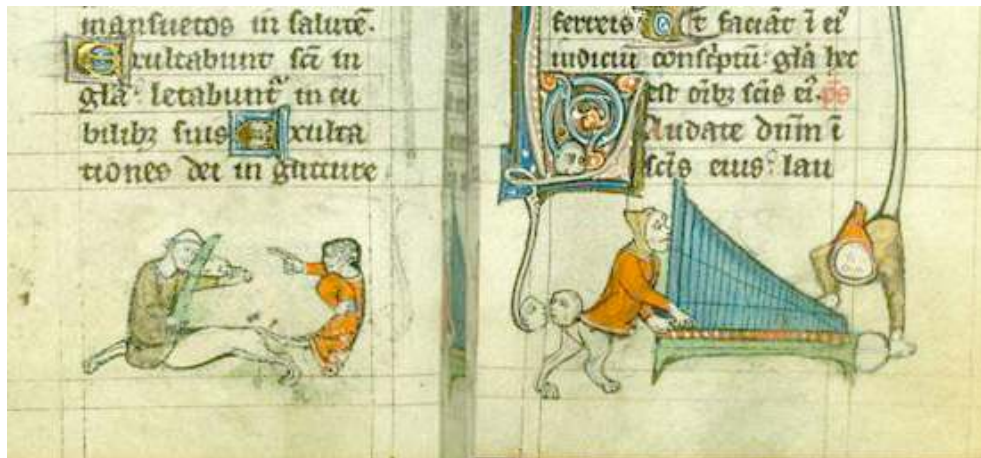 mansuetos in salutē.
Exultabunt sc̄i in
gl̄a: letabunt᷑ in cu
bilibꝫ suis Exulta
tiones dei in gutture
ferreis Ut faciāt ī eiꝰ
iudiciū conscͥptū: gl̄a hec
est oībꝫ sc̄is eiꝰ. ps
Laudate dūm ī
sc̄is eius: lau